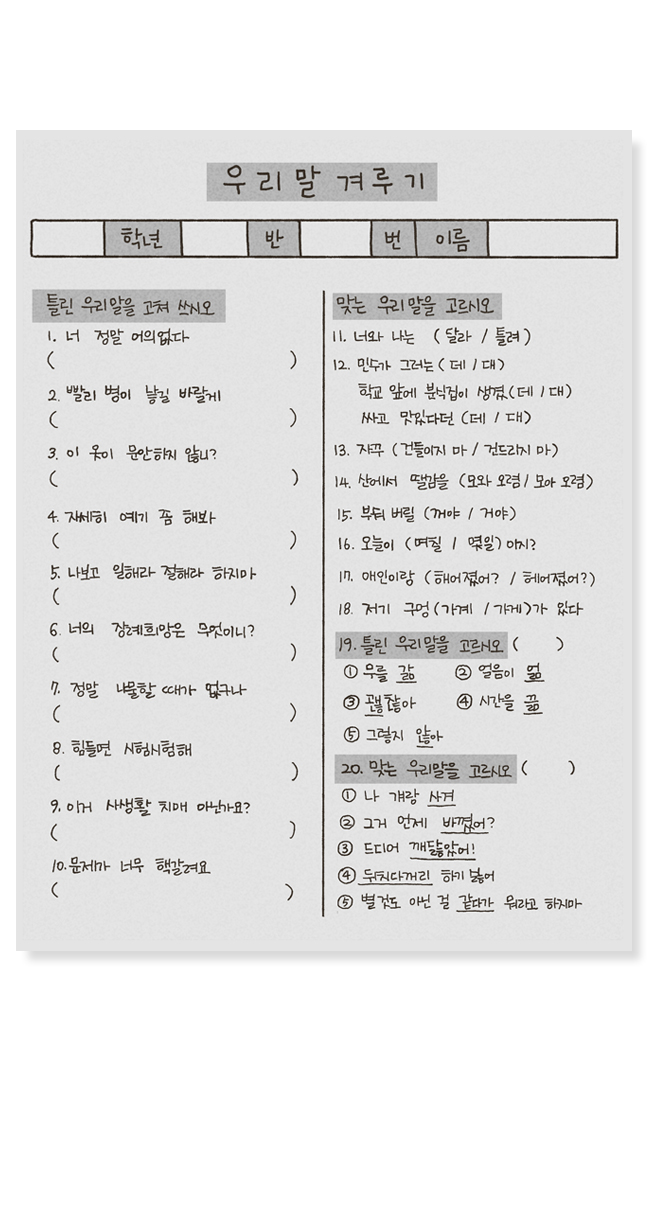 우리말 겨루기
학년 반 번 이름
틀린 우리말을 고쳐 쓰시오
1. 너 정말 어의없다
( )
2. 빨리 병이 낳길 바랄게
( )
3. 이 옷이 문안하지 않니?
( )
4. 자세히 예기 좀 해봐
( )
5. 나보고 일해라 절해라 하지마
( )
6. 너의 장례희망은 무엇이니?
( )
7. 정말 나물할 때가 없구나
( )
8. 힘들면 시험시험해
( )
9. 이거 사생활 치매 아닌가요?
( )
10. 문제가 너무 핵갈려요
( )
맞는 우리말을 고르시오
11. 너와 나는 (달라 / 틀려)
12. 민수가 그러는 (데 / 대)
학교 앞에 분식집이 생겼 (데 / 대)
싸고 맛있다던 (데 / 대)
13. 자꾸 (건들이지 마 / 건드리지 마)
14. 산에서 땔감을 (모와 오렴 / 모아 오렴)
15. 부숴 버릴 (꺼야 / 거야)
16. 오늘이 (며칠 / 몇일) 이지?
17. 애인이랑 (해어졌어? / 헤어졌어?)
18. 저기 구멍 (가계 / 가게)가 있다
19. 틀린 우리말을 고르시오 ( )
① 무를 갊 ② 얼음이 얾
③ 괞찮아 ④ 시간을 끎
⑤ 그렇지 않아
20. 맞는 우리말을 고르시오 ( )
① 나 걔랑 사겨
② 그거 언제 바꼈어?
③ 드디어 깨닳았어!
④ 뒤치다꺼리 하기 싫어
⑤ 별것도 아닌 걸 같다가 뭐라고 하지마